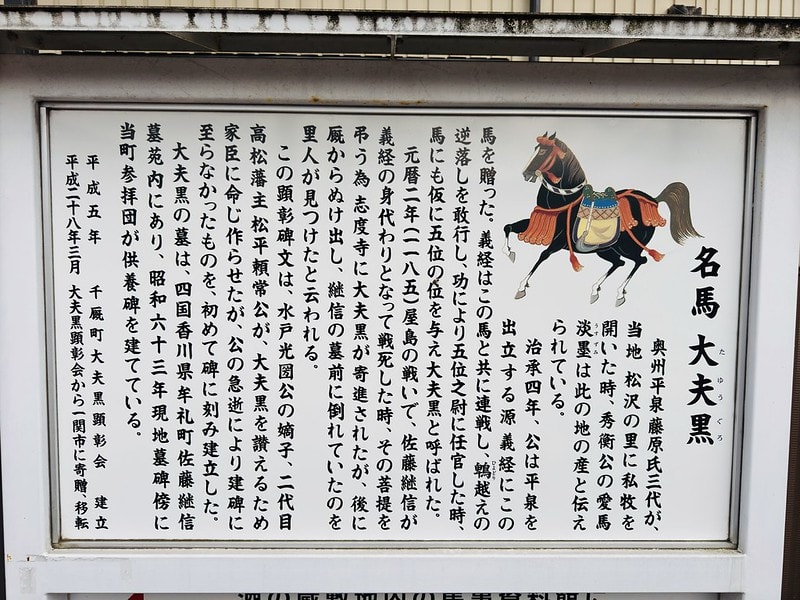 名馬 大夫黒
たゆうぐろ
奥州平泉藤原氏三代が、
当地 松沢の里に私牧を
開いた時、秀衡公の愛馬
淡墨は此の地の産と伝え
うすずみ
られている。
治承四年、公は平泉を
出立する源義経にこの
馬を贈った。義経はこの馬と共に連戦し、鵯越えの
ひよどり
逆落しを敢行し、功により五位之尉に任官した時、
馬にも仮に五位の位を与え大夫黒と呼ばれた。
元暦二年(一一八五)屋島の戦いで、佐藤継信が
義経の身代わりとなって戦死した時、その菩提を
弔う為 志度寺に大夫黒が寄進されたが、後に
厩からぬけ出し、継信の墓前に倒れていたのを
里人が見つけたと云われる。
この顕彰碑文は、水戸光圀公の嫡子、二代目
高松藩主松平頼常公が、大夫黒を讃えるため
家臣に命じ作らせたが、公の急逝により建碑に
至らなかったものを、初めて碑に刻み建立した。
大夫黒の墓は、四国香川県牟礼町佐藤継信
墓苑内にあり、昭和六十三年現地墓碑傍に
当町参拝団が供養碑を建てている。
平成五年 千厩町大夫黒顕彰会 建立
平成二十八年三月 大夫黒顕彰会から一関市に寄贈、移転